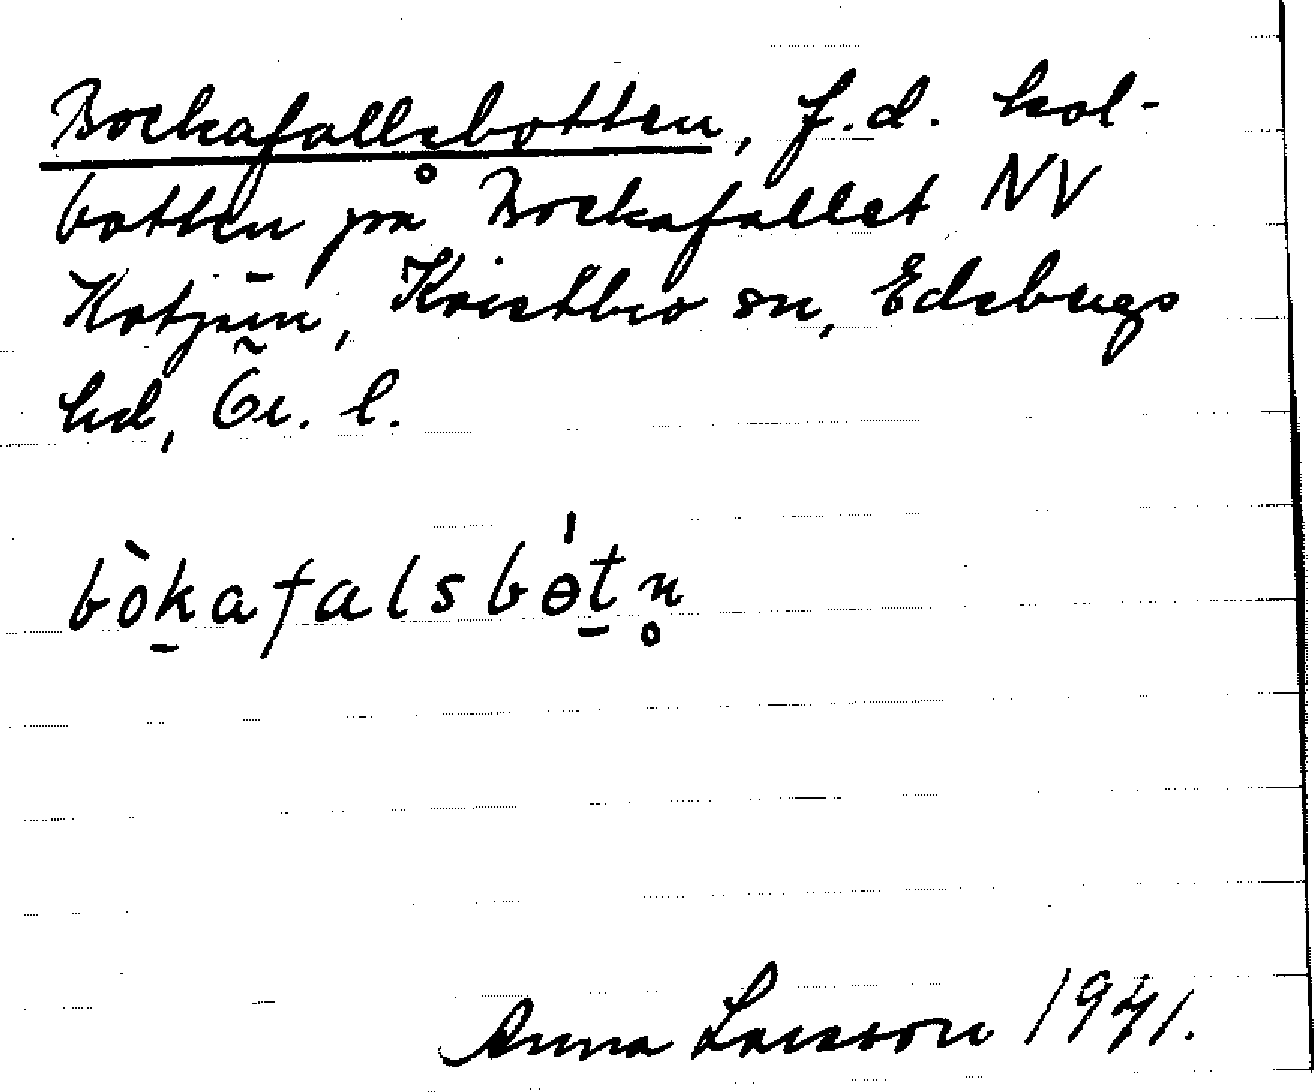 Bockafallsbotten, f.d. kol-
botten på Bockafallet NV
Kvistbro sn, Edsbergs
hd, Ör. l.
bòk̠afalsbɵ́t̠n̥
Anna Larsson 1941.